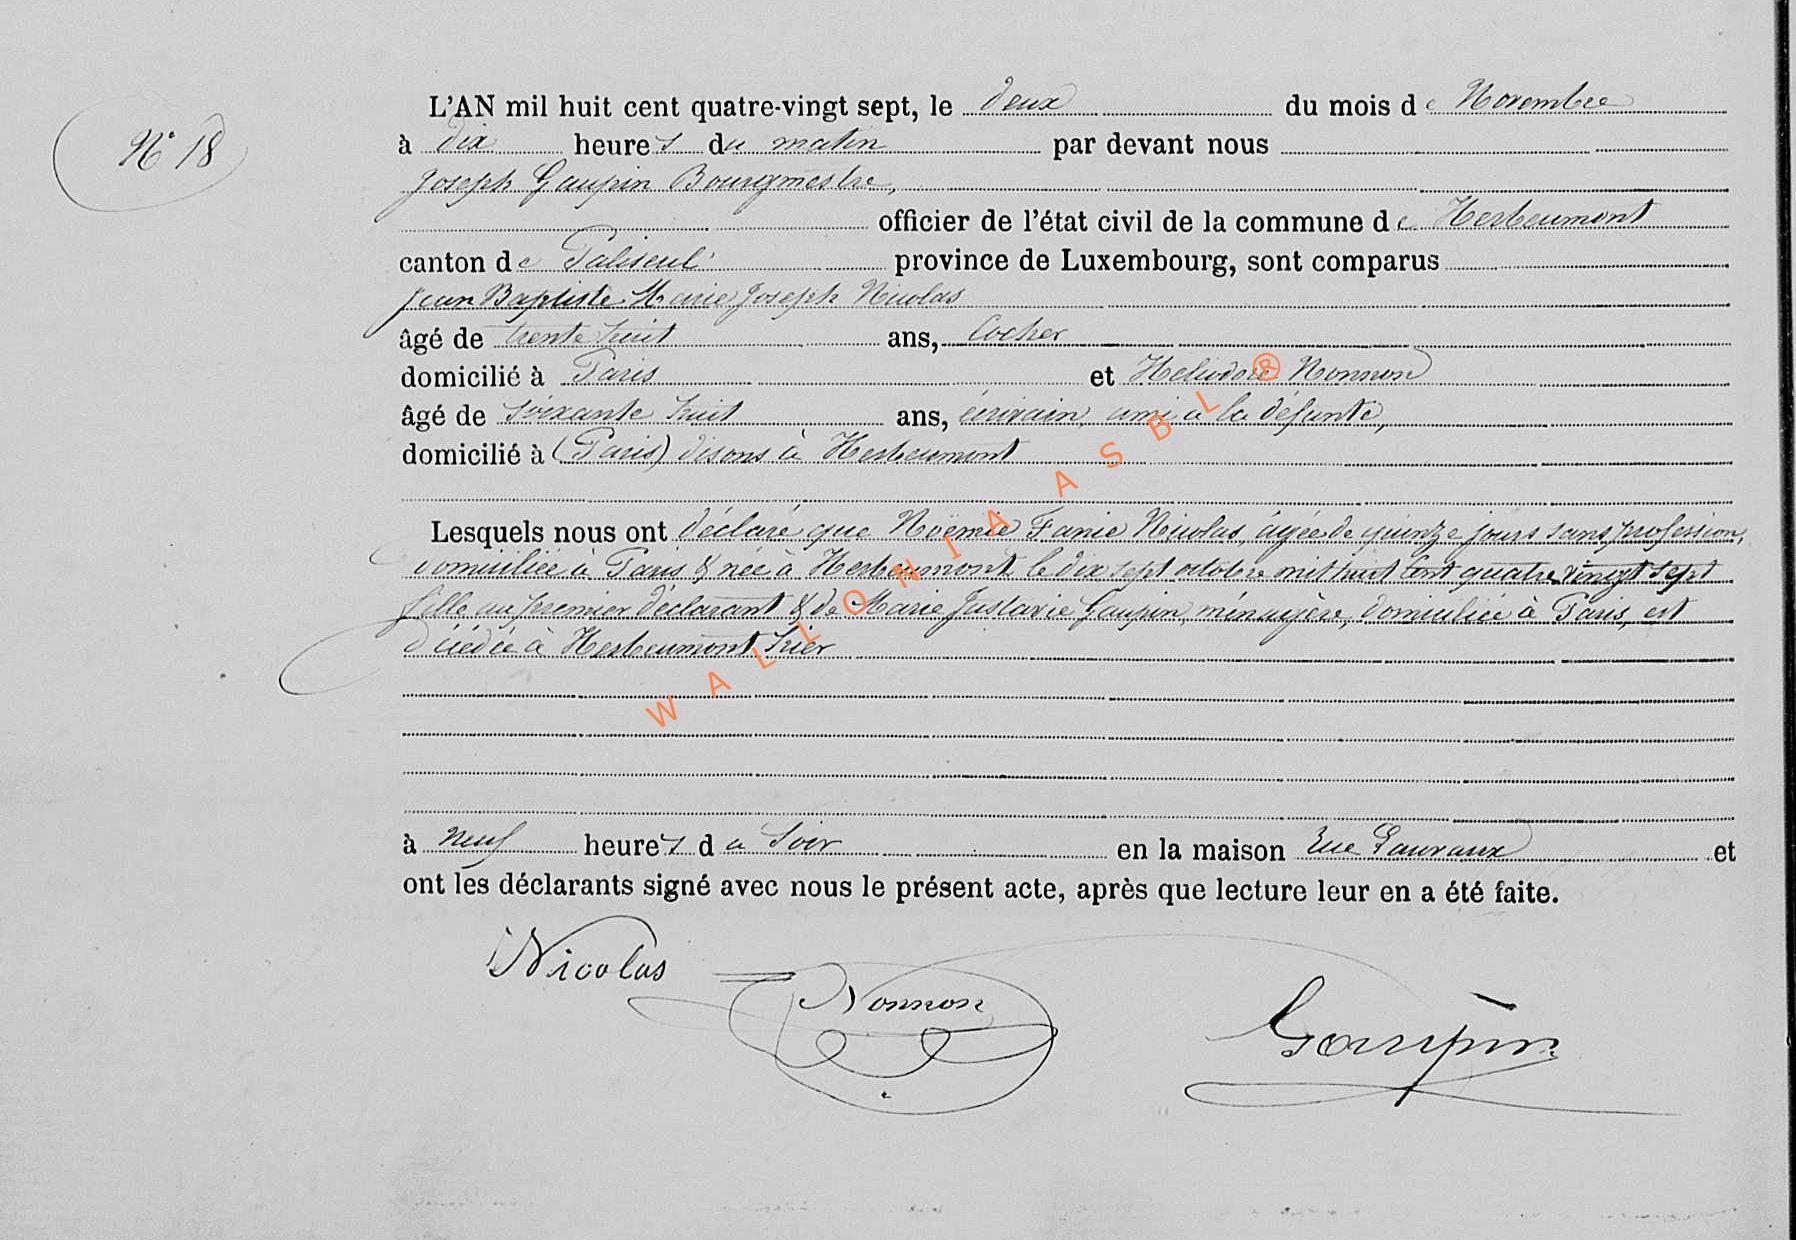 N° 18
L'AN mil huit cent quatre-vingt sept, le deux du mois de Novembre
à dix heures du matin par devant nous
Joseph Gaupin Bourgmestre,
officier de l'état civil de la commune de Herbeumont
canton de Paliseul province de Luxembourg, sont comparus
Jean Baptiste Marie Joseph Nicolas
âgé de trente huit ans, Cocher
domicilié à Paris et Heliodore Nonnon
âgé de soixante huit ans, écrivain, ami a la défunte,
domicilié à (Paris) disons à Herbeumont
Lesquels nous ont déclaré que Noëmie Fanie Nicolas, agée de quinze jours sans profession,
domiciliée à Paris & née à Herbeumont le dix sept octobre mil huit cent quatre vingt sept
fille au premier déclarant & de Marie Justavie Gaupin, ménagère, domiciliée à Paris, est
décédée à Herbeumont hier
à neuf heures du Soir en la maison rue et
ont les déclarants signé avec nous le présent acte, après que lecture leur en a été faite.
Nicolas
Nonnon
Gaupin
WALLONIA ASBL ®